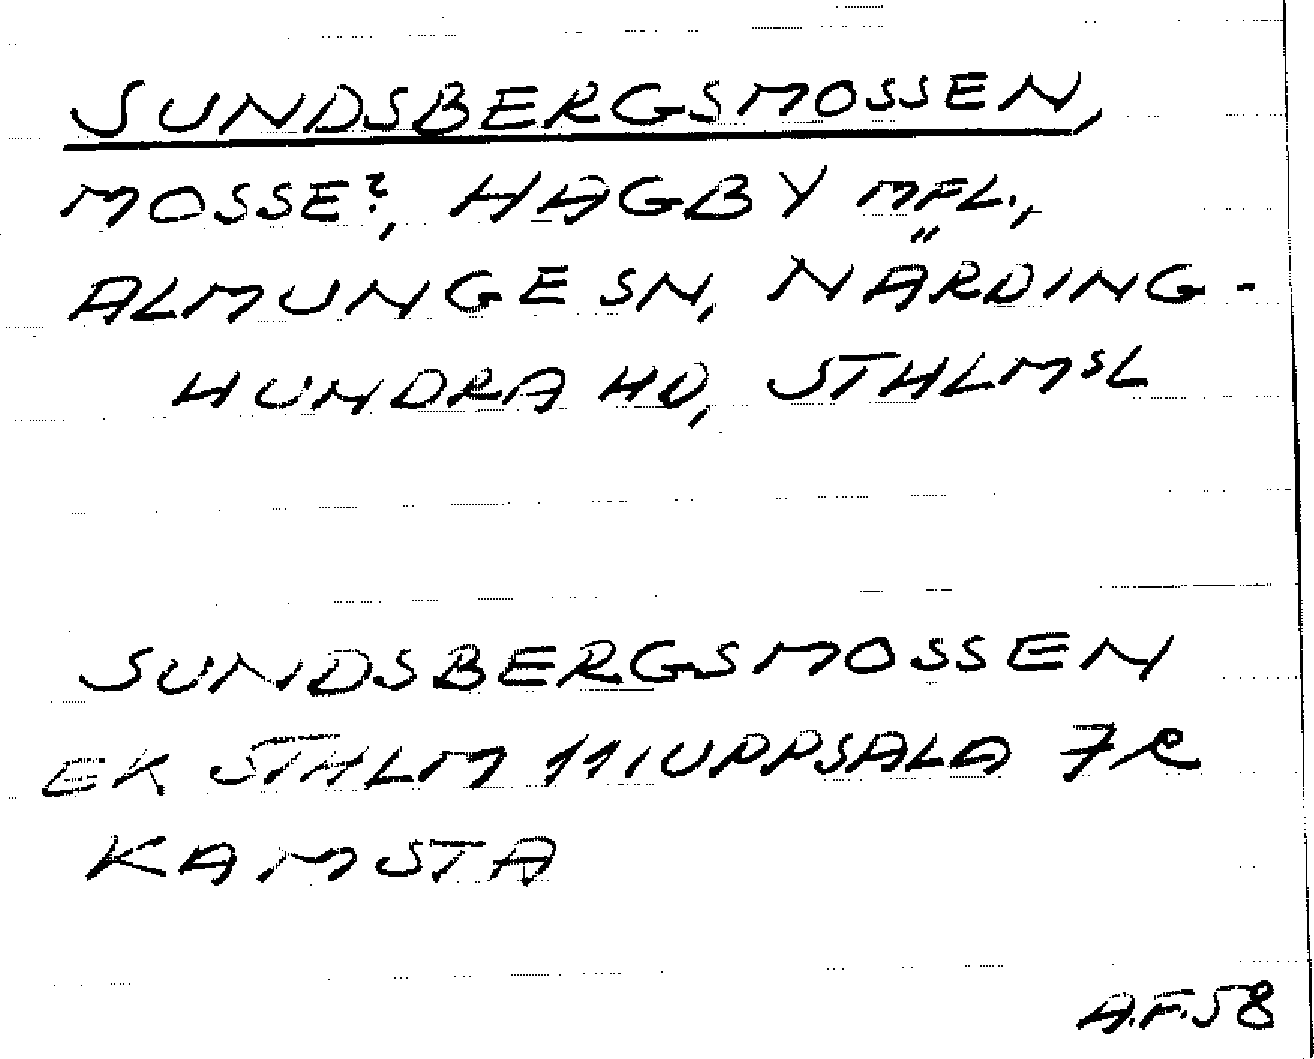 SUNDSBERGSMOSSEN,
MOSSE?, HAGBY MFL.,
ALMUNGE SN, NÄRDING-
HUNDRA HD, STHLMSL
SUNDSBERGSMOSSEN
EK STHLM 11, UPPSALA 7R
KAMSTA
A.F.58